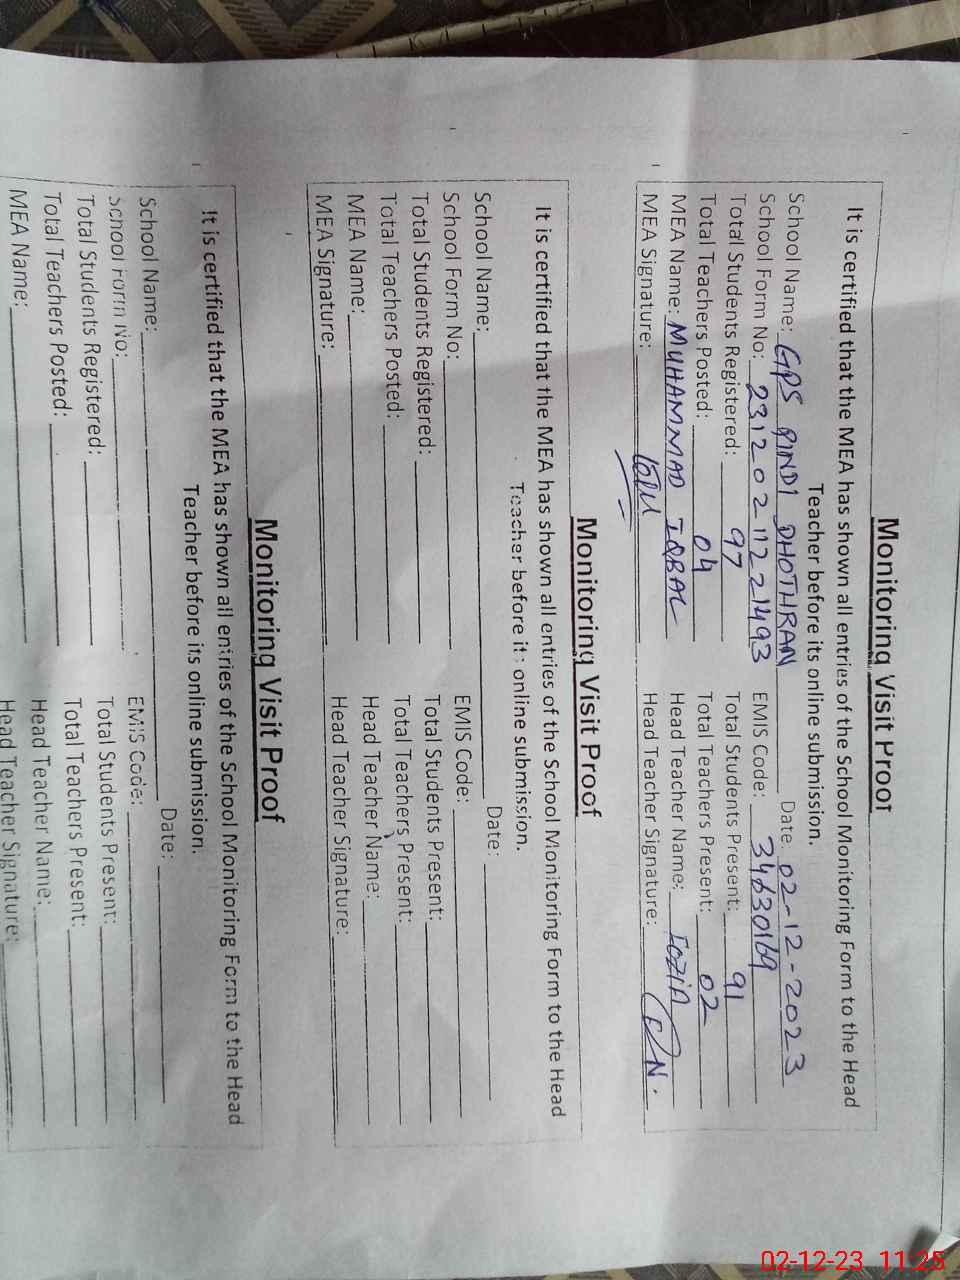 Monitoring Visit Proof
It is certified that the MEA has shown all entries of the School Monitoring Form to the Head
Teacher before its online submission.
School Name: GPS PINDI DHOTHRAN Date 02-12-2023
School Form No: 2312021122 21493 EMIS Code: 34630169
Total Students Registered: 97 Total Students Present: 91
Total Teachers Posted: 04 Total Teachers Present: 02
MEA Name: MUHAMMAD IQBAL Head Teacher Name:
MEA Signature: Head Teacher Signature:
Monitoring Visit Proof
It is certified that the MEA has shown all entries of the School Monitoring Form to the Head
Teacher before its online submission.
School Name: Date:
School Form No: EMIS Code:
Total Students Registered: Total Students Present:
Total Teachers Posted: Total Teachers Present:
MEA Name: Head Teacher Name:
MEA Signature: Head Teacher Signature:
Monitoring Visit Proof
It is certified that the MEA has shown all entries of the School Monitoring Form to the Head
Teacher before its online submission.
School Name: Date:
School Form No: EMIS Code:
Total Students Registered: Total Students Present:
Total Teachers Posted: Total Teachers Present:
MEA Name: Head Teacher Name:
Head Teacher Signature:
02-12-23 11:25